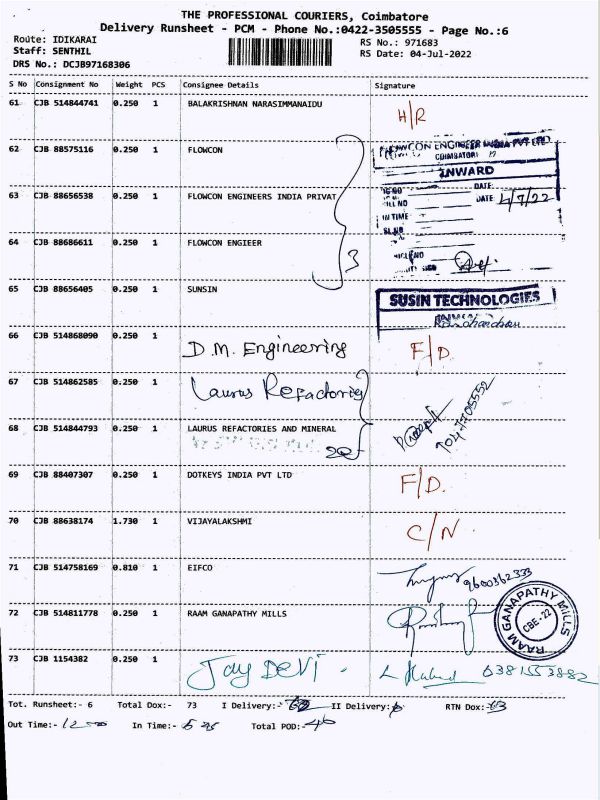 THE PROFESSIONAL COURIERS, Coimbatore
Delivery Runsheet - PCM - Phone No.:0422-3505555 - Page No.:6
Route: IDIKARAI RS No.: 971683
Staff: SENTHIL RS Date: 04-Jul-2022
DRS No.: DCJB97168306
S No Consignment No Weight PCS Consignee Details Signature
61 CJB 514844741 0.250 1 BALAKRISHNAN NARASIMMANAIDU H/R
62 CJB 88575116 0.250 1 FLOWCON
FLOWCON ENGINEER INDIA PVT LTD
COIMBATORE
INWARD
DATE
63 CJB 88656538 0.250 1 FLOWCON ENGINEERS INDIA PRIVAT
DATE 4/7/22
IN TIME
64 CJB 88686611 0.250 1 FLOWCON ENGIEER
3
65 CJB 88656405 0.250 1 SUNSIN
SUSIN TECHNOLOGIES
66 CJB 514868090 0.250 1 D.M. Engineering F/D.
67 CJB 514862585 0.250 1 Laurus Refactories
68 CJB 514844793 0.250 1 LAURUS REFACTORIES AND MINERAL
69 CJB 88407307 0.250 1 DOTKEYS INDIA PVT LTD F/D.
70 CJB 88638174 1.730 1 VIJAYALAKSHMI C/N
71 CJB 514758169 0.810 1 EIFCO 9600362333
72 CJB 514811778 0.250 1 RAAM GANAPATHY MILLS
RAAM GANAPATHY MILLS
CBE-22
73 CJB 1154382 0.250 1 Jay DEVI
Tot. Runsheet:- 6 Total Dox:- 73 I Delivery:- II Delivery: RTN Dox:-
Out Time:- In Time:- Total POD:-